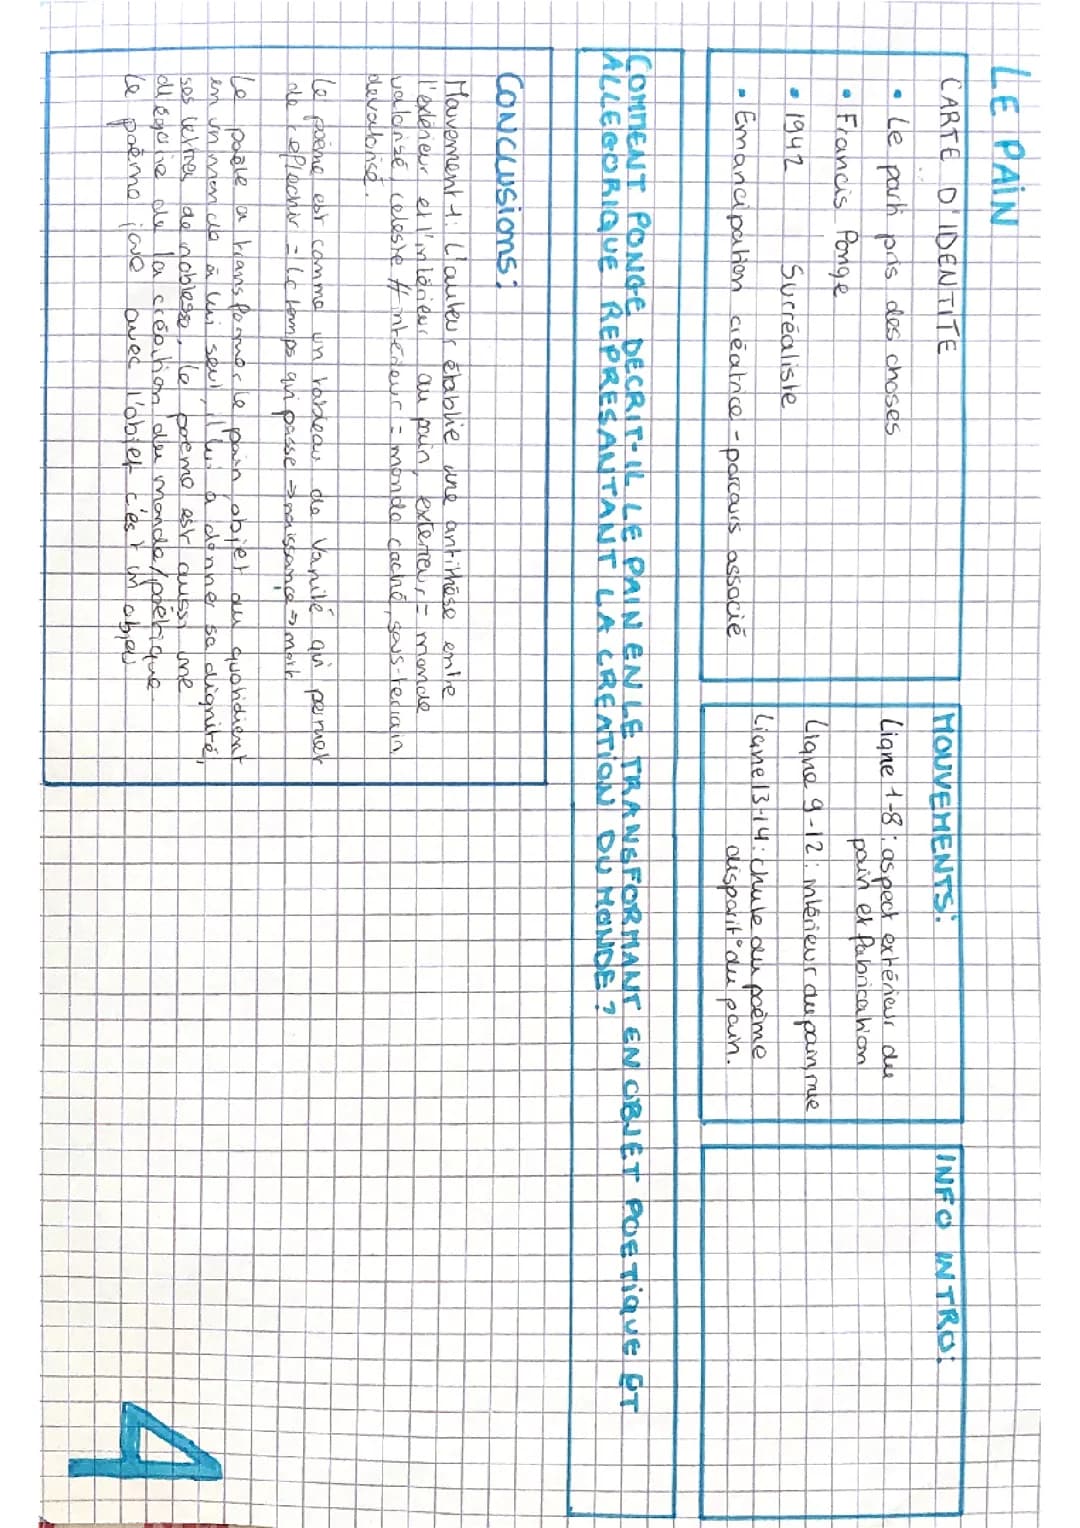 LE PAIN
CARTE D'IDENTITE
• Le parti pris des choses
• Francis Ponge
• 1942 Surréaliste
• Emancipation créatrice - parcours associé
MOUVEMENTS:
Ligne 1-8: aspect extérieur du
pain et fabrication
Ligne 9-12: intérieur du pain, mie
Ligne 13-14: chute du poème
disparit° du pain.
INFO INTRO:
COMMENT PONGE DECRIT-IL LE PAIN EN LE TRANSFORMANT EN OBJET POETIQUE ET
ALLEGORIQUE REPRESANTANT LA CREATION DU MONDE?
CONCLUSIONS:
Mouvement 1: L'auteur établie une antithèse entre
l'extérieur et l'intérieur du pain, exterieur = monde
valorisé, celeste # intérieur = monde caché, sous-terrain
devalorisé.
Le poème est comme un tableau de Vanité qui permet
de reflechir = le temps qui passe → naissance → mort
Le poète a transformer le pain, objet du quotidient
en un monde à lui seul, il lui a donner sa dignité,
ses lettres de noblesse, le poeme est aussi une
allégorie de la création du monde/poètique
Le poème joue avec l'objet c'est un objeu
4